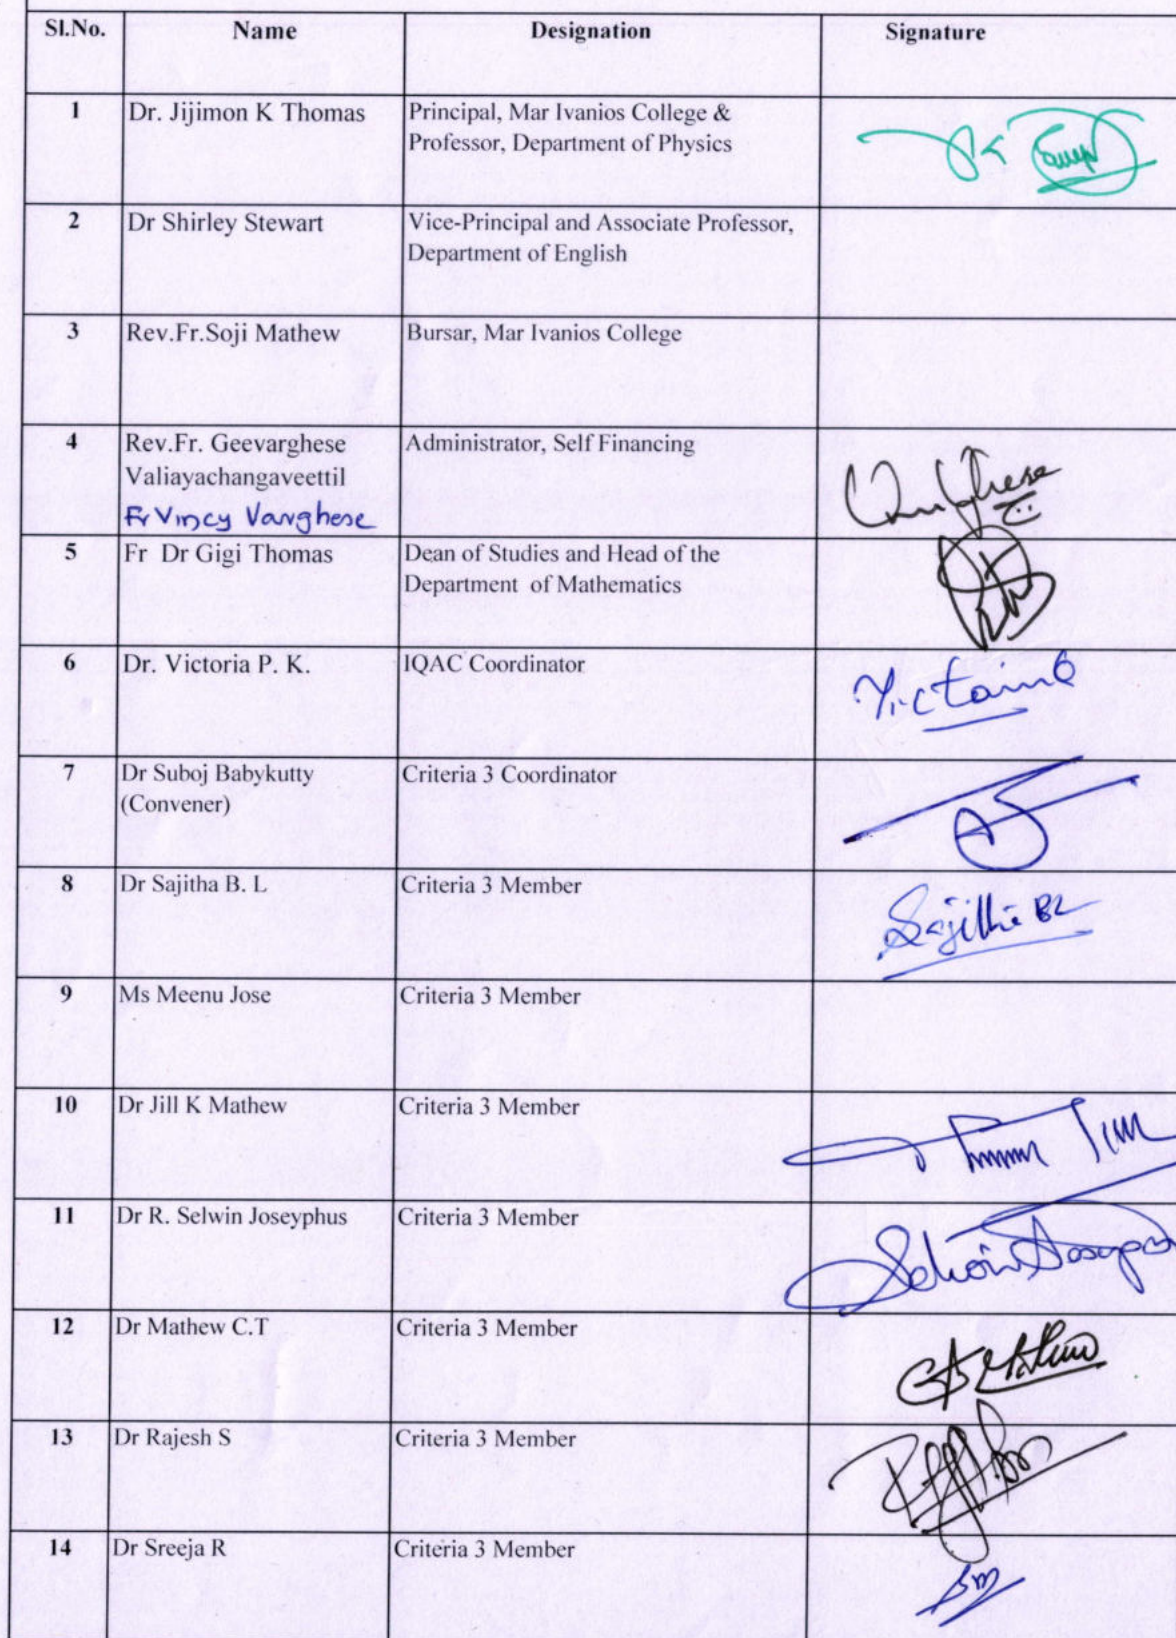 Sl.No. Name Designation Signature
1 Dr. Jijimon K Thomas Principal, Mar Ivanios College &
Professor, Department of Physics
2 Dr Shirley Stewart Vice-Principal and Associate Professor,
Department of English
3 Rev.Fr.Soji Mathew Bursar, Mar Ivanios College
4 Rev.Fr. Geevarghese Administrator, Self Financing
Valiayachangaveettil
Fr Vincy Varghese
5 Fr Dr Gigi Thomas Dean of Studies and Head of the
Department of Mathematics
6 Dr. Victoria P. K. IQAC Coordinator
7 Dr Suboj Babykutty Criteria 3 Coordinator
(Convener)
8 Dr Sajitha B. L Criteria 3 Member Sajitha BL
9 Ms Meenu Jose Criteria 3 Member
10 Dr Jill K Mathew Criteria 3 Member
11 Dr R. Selwin Joseyphus Criteria 3 Member
12 Dr Mathew C.T Criteria 3 Member
13 Dr Rajesh S Criteria 3 Member
14 Dr Sreeja R Criteria 3 Member